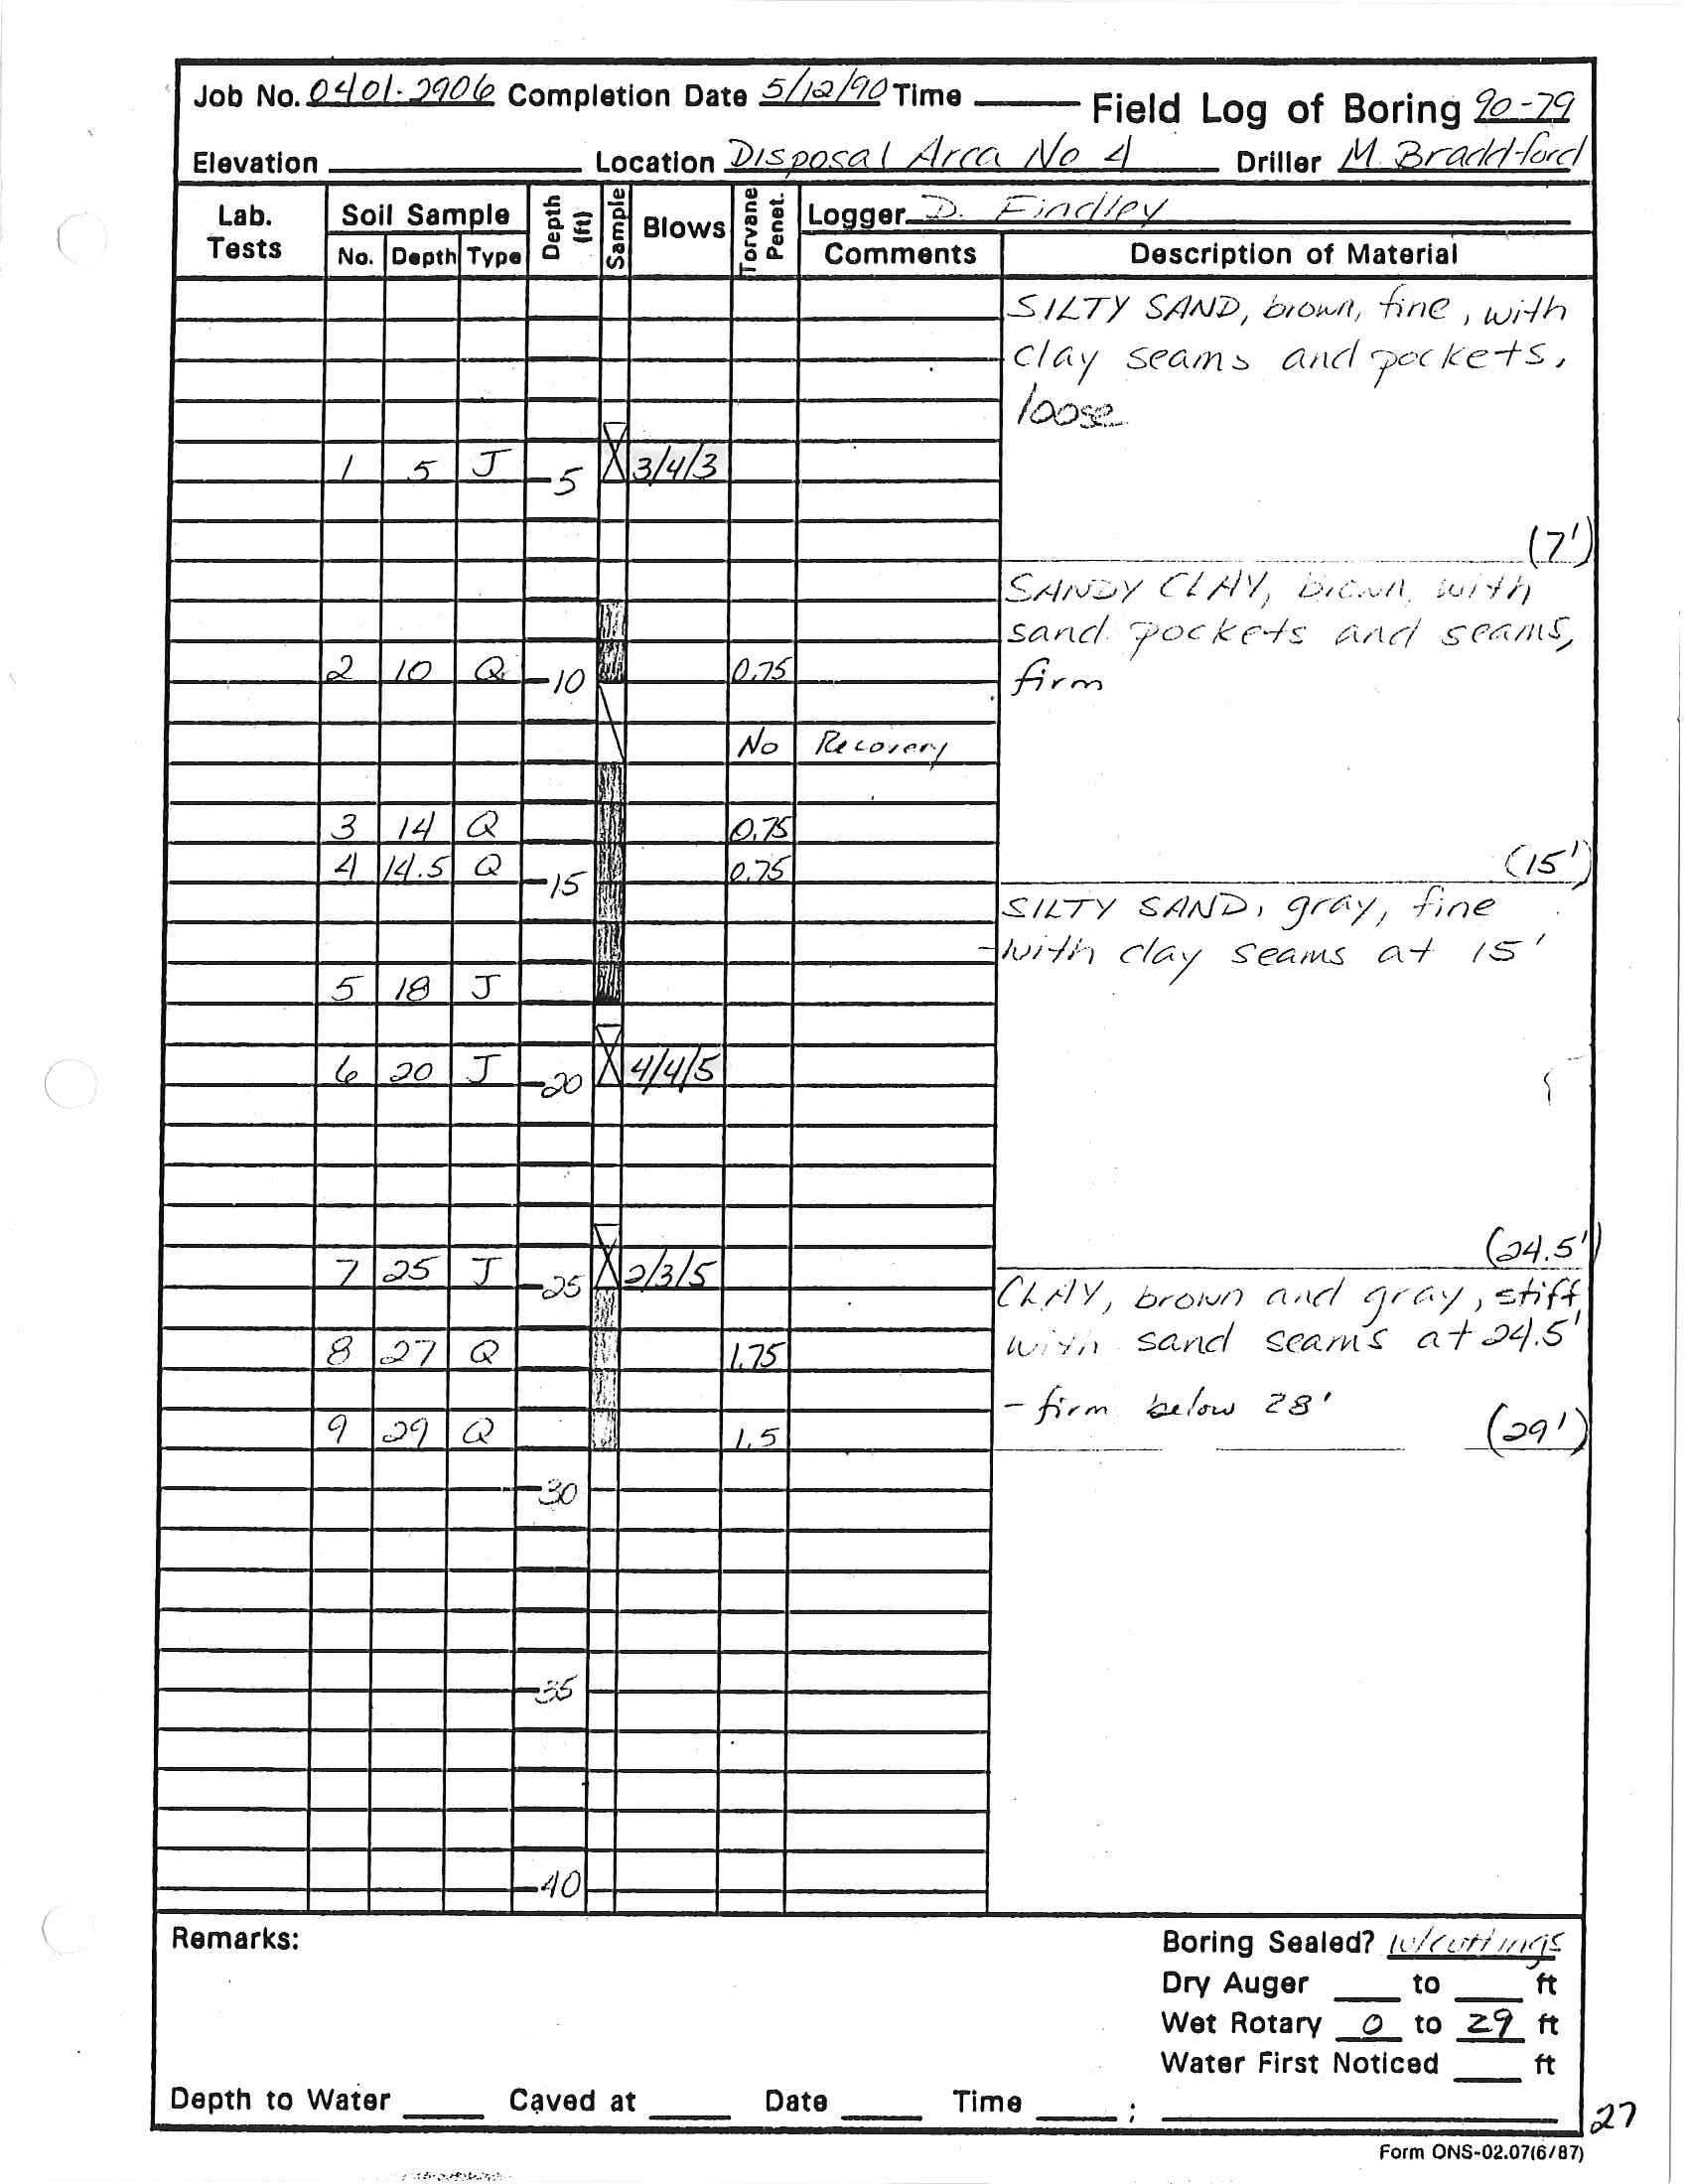 Job No. 0401-2906 Completion Date 5/12/90 Time ____ Field Log of Boring 90-79
Elevation ____ Location Disposal Area No 4 Driller M. Braddford
Lab. Tests | Soil Sample | Depth (ft) | Sample | Blows | Torvane Penet. | Logger D. Findley
No. | Depth | Type | Comments | Description of Material
SILTY SAND, brown, fine, with
clay seams and pockets,
loose
1 5 J 5 3/4/3
(7')
SANDY CLAY, brown, with
sand pockets and seams,
2 10 Q 10 0.75 firm
No Recovery
3 14 Q 0.75
4 14.5 Q 15 0.75 (15')
SILTY SAND, gray, fine
-with clay seams at 15'
5 18 J
6 20 J 20 4/4/5
(24.5')
7 25 J 25 2/3/5
CLAY, brown and gray, stiff,
with sand seams at 24.5'
8 27 Q 1.75
- firm below 28'
9 29 Q 1.5 (29')
30
35
40
Remarks: Boring Sealed? w/cuttings
Dry Auger ____ to ____ ft
Wet Rotary 0 to 29 ft
Water First Noticed ____ ft
Depth to Water ____ Caved at ____ Date ____ Time ____ ; ____
27
Form ONS-02.07(6/87)